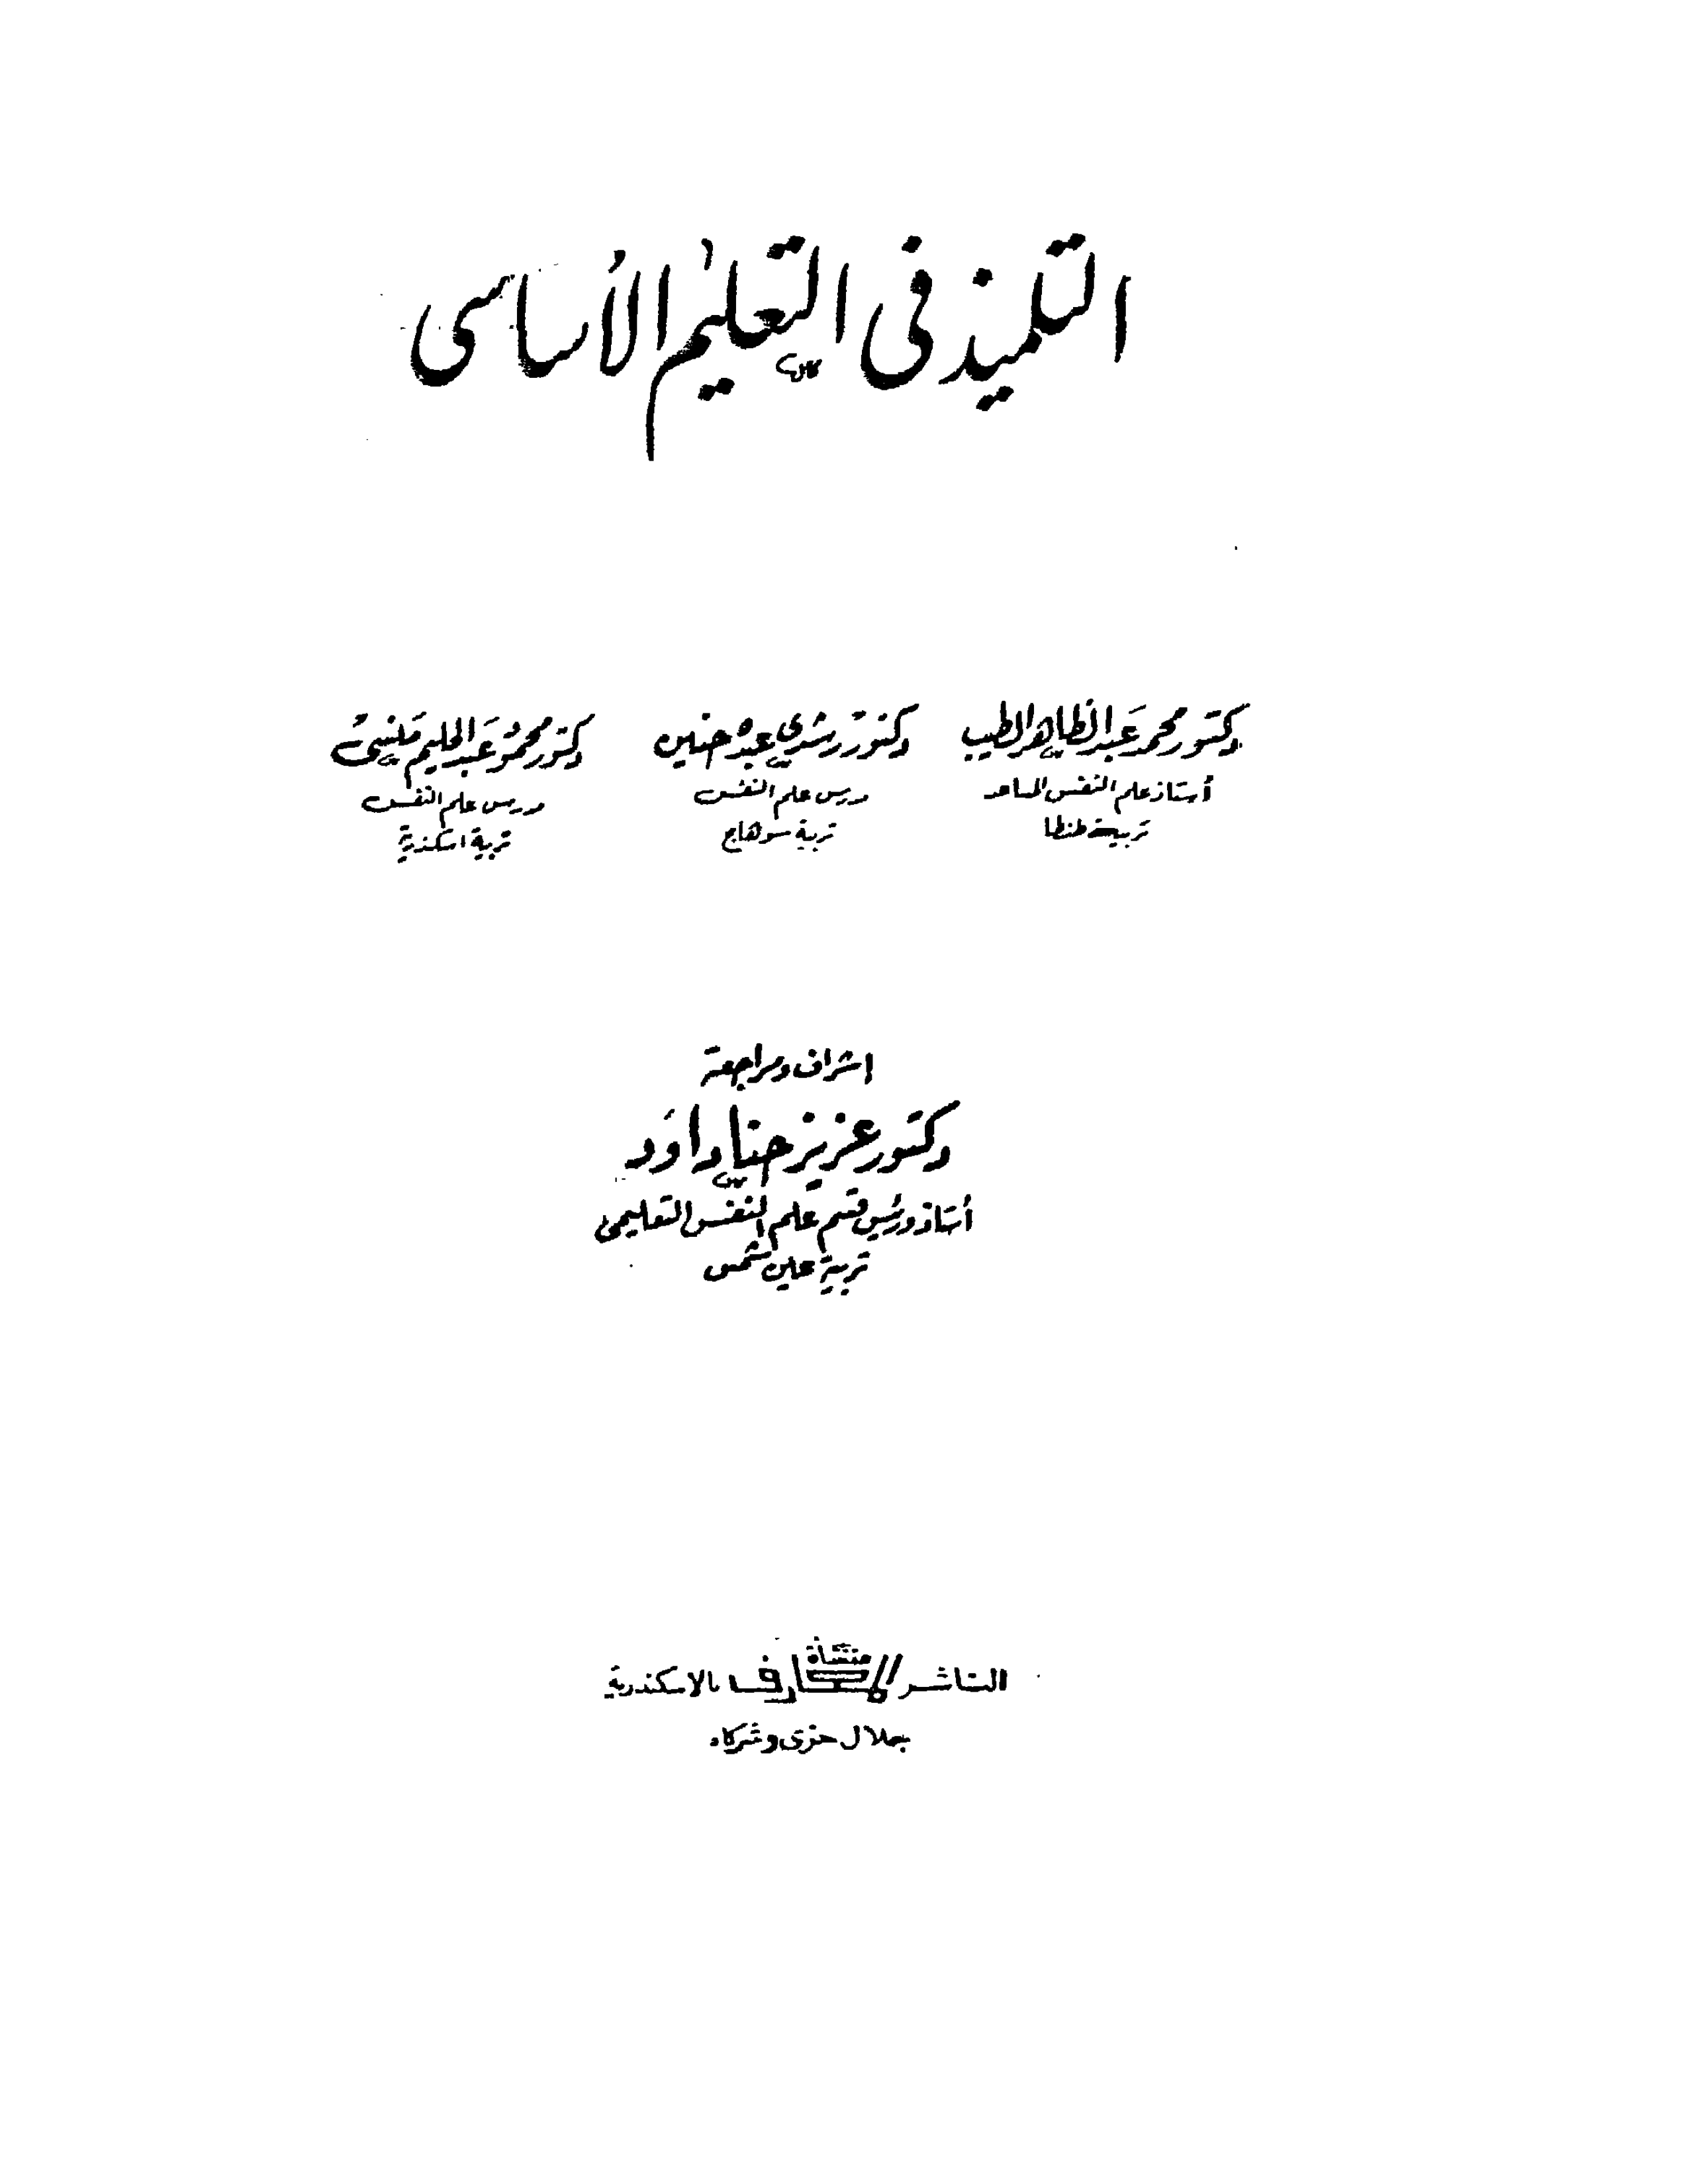 التلميذ في التعليم الأساسى
دكتور محمد عبد الظاهر الطيب
أستاذ علم النفس المساعد
تربية طنطا
دكتور رشدي عبده حنين
مدرس علم النفس
تربية سوهاج
دكتور محمود عبد الحليم منسى
مدرس علم النفس
تربية اسكندرية
اشراف ومراجعة
دكتور عزيز حنا داود
أستاذ ورئيس قسم علم النفس التعليمى
تربية عين شمس
الناشر منشأة المعارف بالاسكندرية
جلال حزى وشركاه